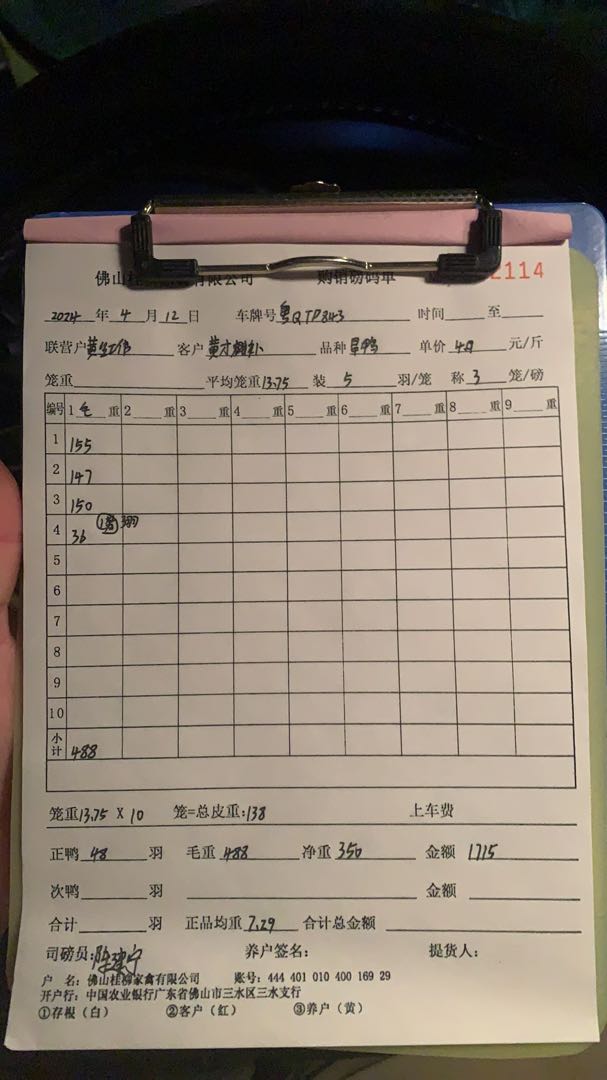 佛山桂 有限公司 购销磅码单 2114
2024 年 4 月 12 日 车牌号 粤QTP843 时间 至
联营户 客户 黄才 品种 旱鸭 单价 4.9 元/斤
笼重 平均笼重 13.75 装 5 羽/笼 称 3 笼/磅
编号 1 毛 重 2 重 3 重 4 重 5 重 6 重 7 重 8 重 9 重
1 155
2 147
3 150
4 36 羽
5
6
7
8
9
10
小计 488
笼重 13.75 X 10 笼=总皮重: 138 上车费
正鸭 48 羽 毛重 488 净重 350 金额 1715
次鸭 羽 金额
合计 羽 正品均重 7.29 合计总金额
司磅员: 养户签名: 提货人:
户 名: 佛山桂柳家禽有限公司 账号: 444 401 010 400 169 29
开户行: 中国农业银行广东省佛山市三水区三水支行
①存根（白） ②客户（红） ③养户（黄）